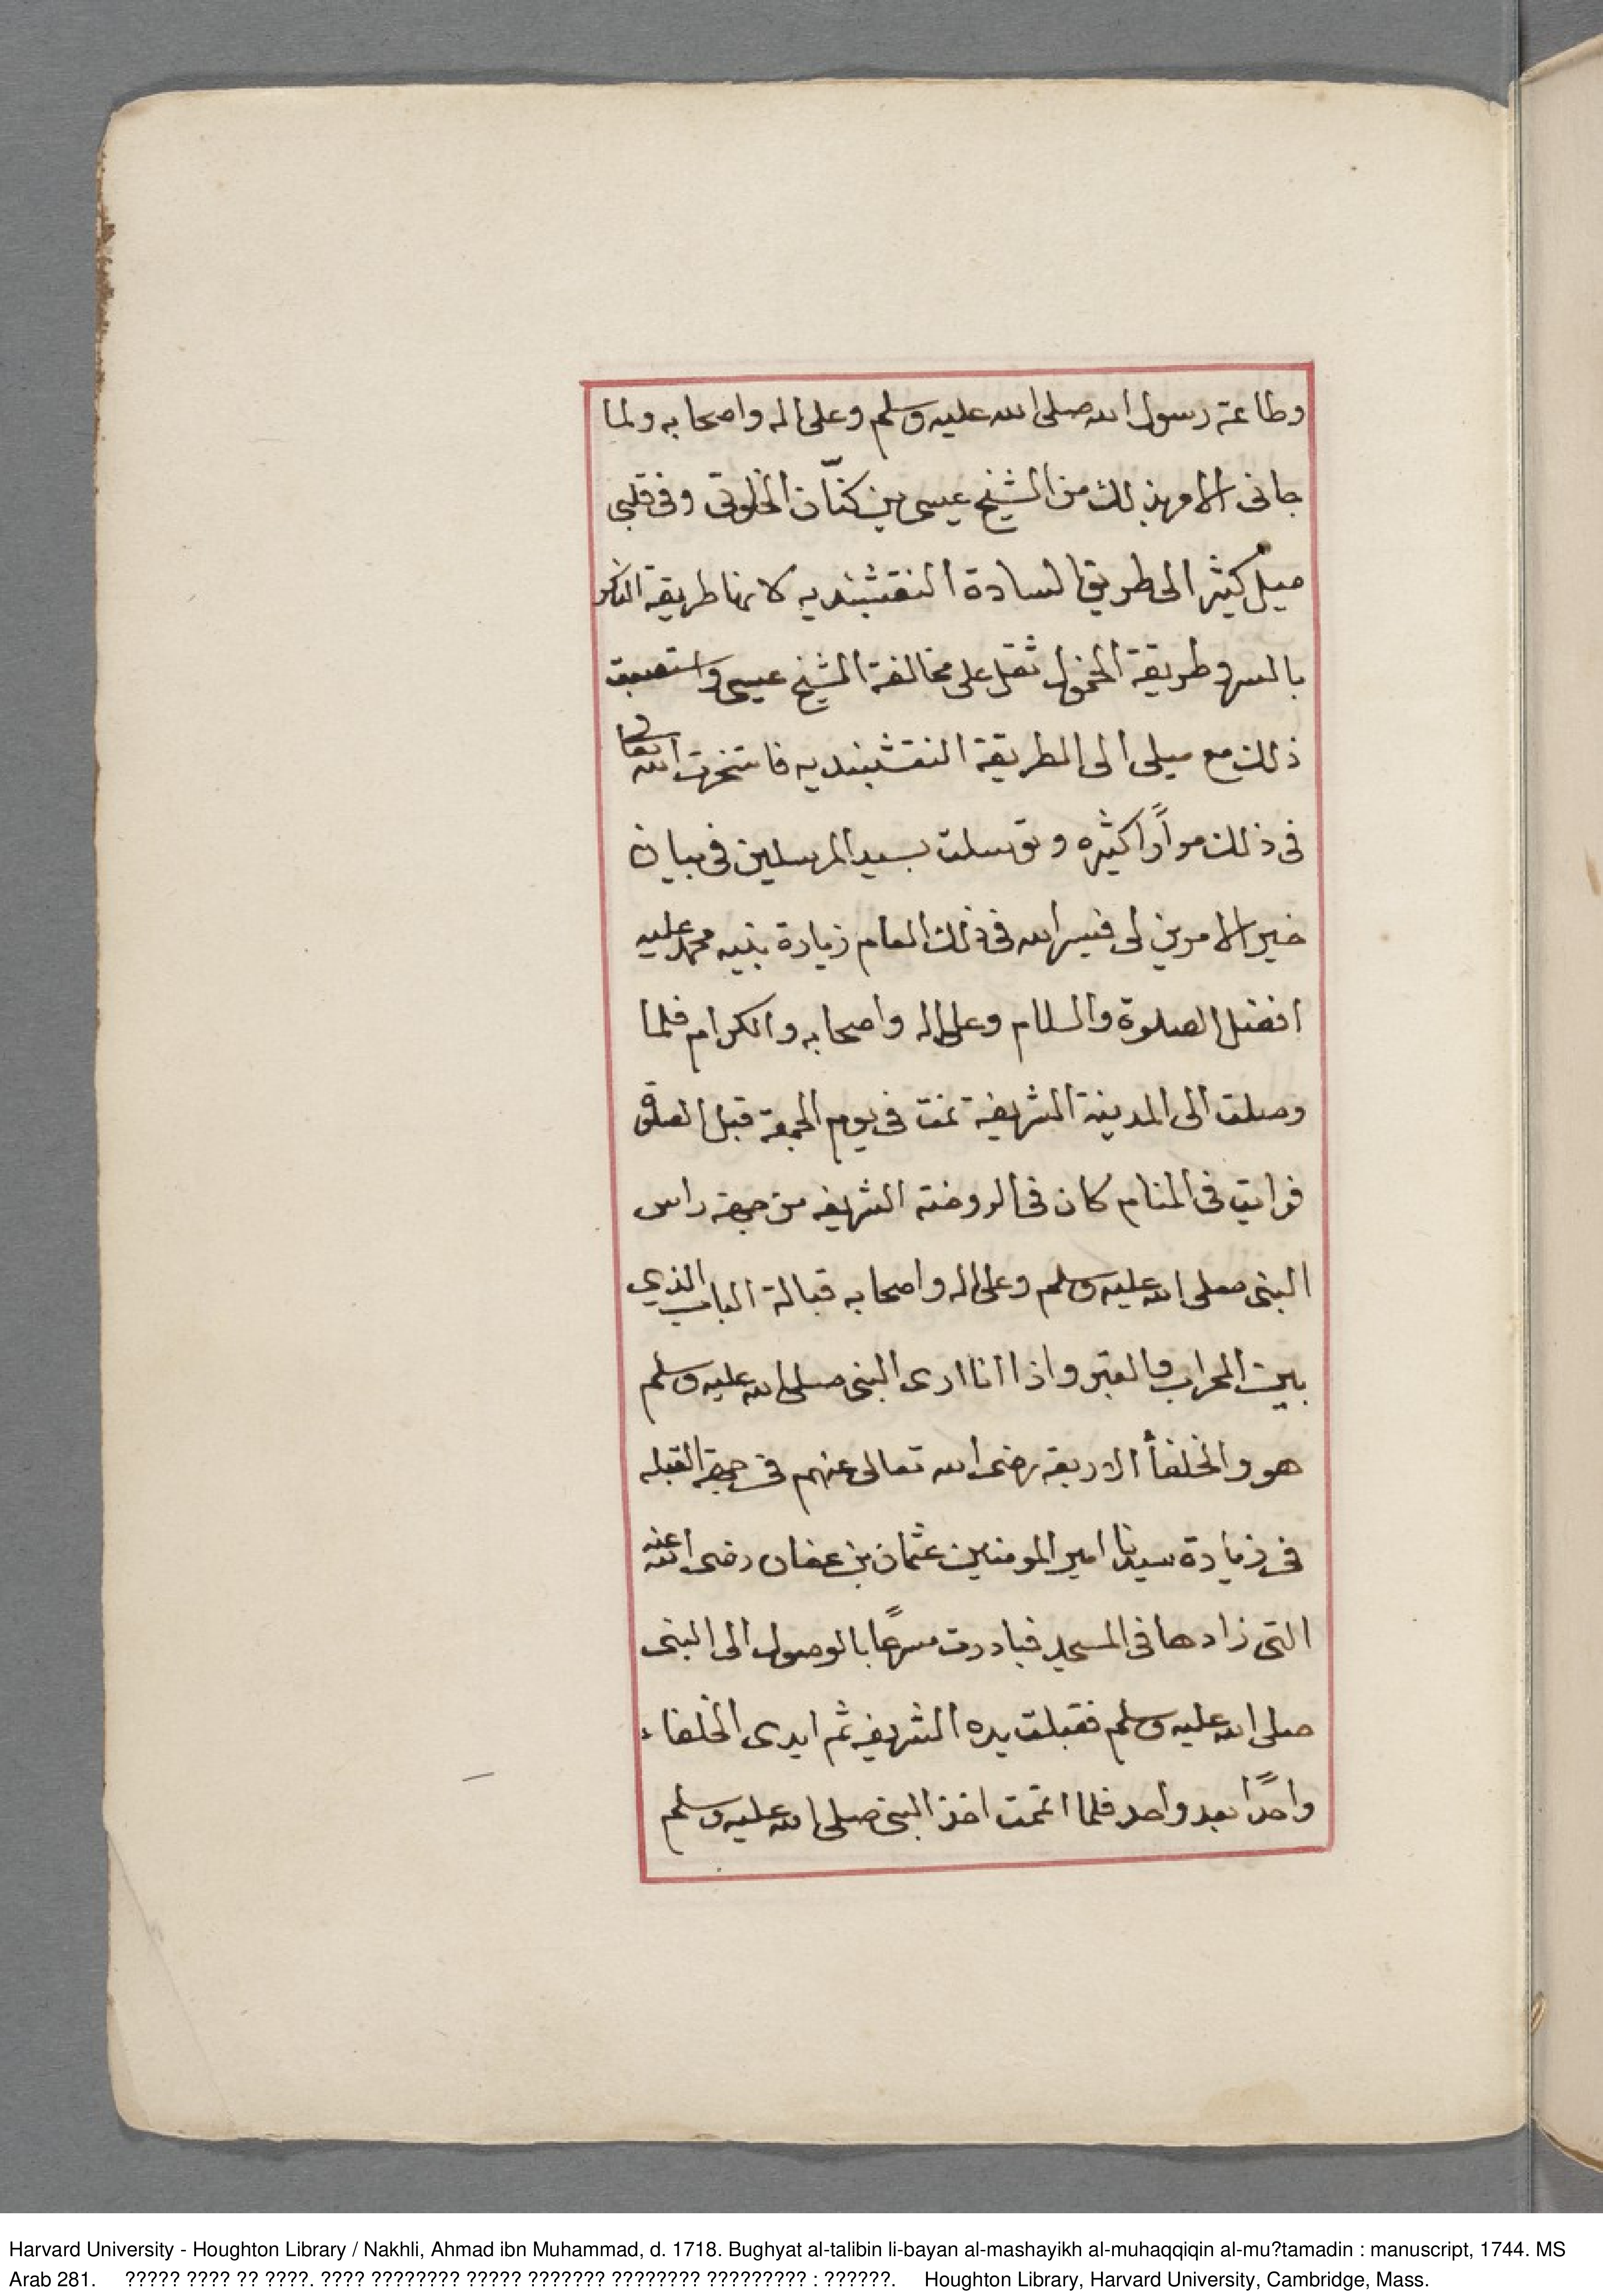 وطاعة رسول الله صلى الله عليه وسلم وعلى اله واصحابه ولما
جانى الامر بذلك من الشيخ عيسى بن كنّان الخلوتى وفى قلبى
ميل كثير الى طريق السادة النقشبنديه لانها طريقة الذكر
بالسر وطريقة الخمول ثقل على مخالفة الشيخ عيسى واستصعبت
ذلك مع ميلى الى الطريقة النقشبنديه فاستخرت الله تعالى
فى ذلك مرارًا كثيره وتوسلت بسيد المرسلين فى بيان
خير الامرين لى فيسر الله فى ذلك العام زيارة نبيه محمد عليه
افضل الصلوة والسلام وعلى اله واصحابه والكرام فلما
وصلت الى المدينة الشريفة نمت فى يوم الجمعة قبل الصلوة
فرايت فى المنام كان فى الروضة الشريفه من جهة راس
النبى صلى الله عليه وسلم وعلى اله واصحابه قبالة الباب الذي
بين المحراب والقبر واذا انا ارى النبى صلى الله عليه وسلم
هو والخلفأ الاربعه رضى الله تعالى عنهم فى جهة القبله
فى زيادة سيدنا امير المومنين عثمان بن عفان رضى الله عنه
التى زادها فى المسجد فبادرت مسرعًا بالوصول الى النبى
صلى الله عليه وسلم فقبلت يده الشريفه ثم ايدى الخلفاء
واحدًا بعد واحد فلما اتممت اخذ النبى صلى الله عليه وسلم
Harvard University - Houghton Library / Nakhli, Ahmad ibn Muhammad, d. 1718. Bughyat al-talibin li-bayan al-mashayikh al-muhaqqiqin al-mu?tamadin : manuscript, 1744. MS
Arab 281. ????? ???? ?? ????. ???? ???????? ????? ??????? ???????? ????????? : ??????. Houghton Library, Harvard University, Cambridge, Mass.